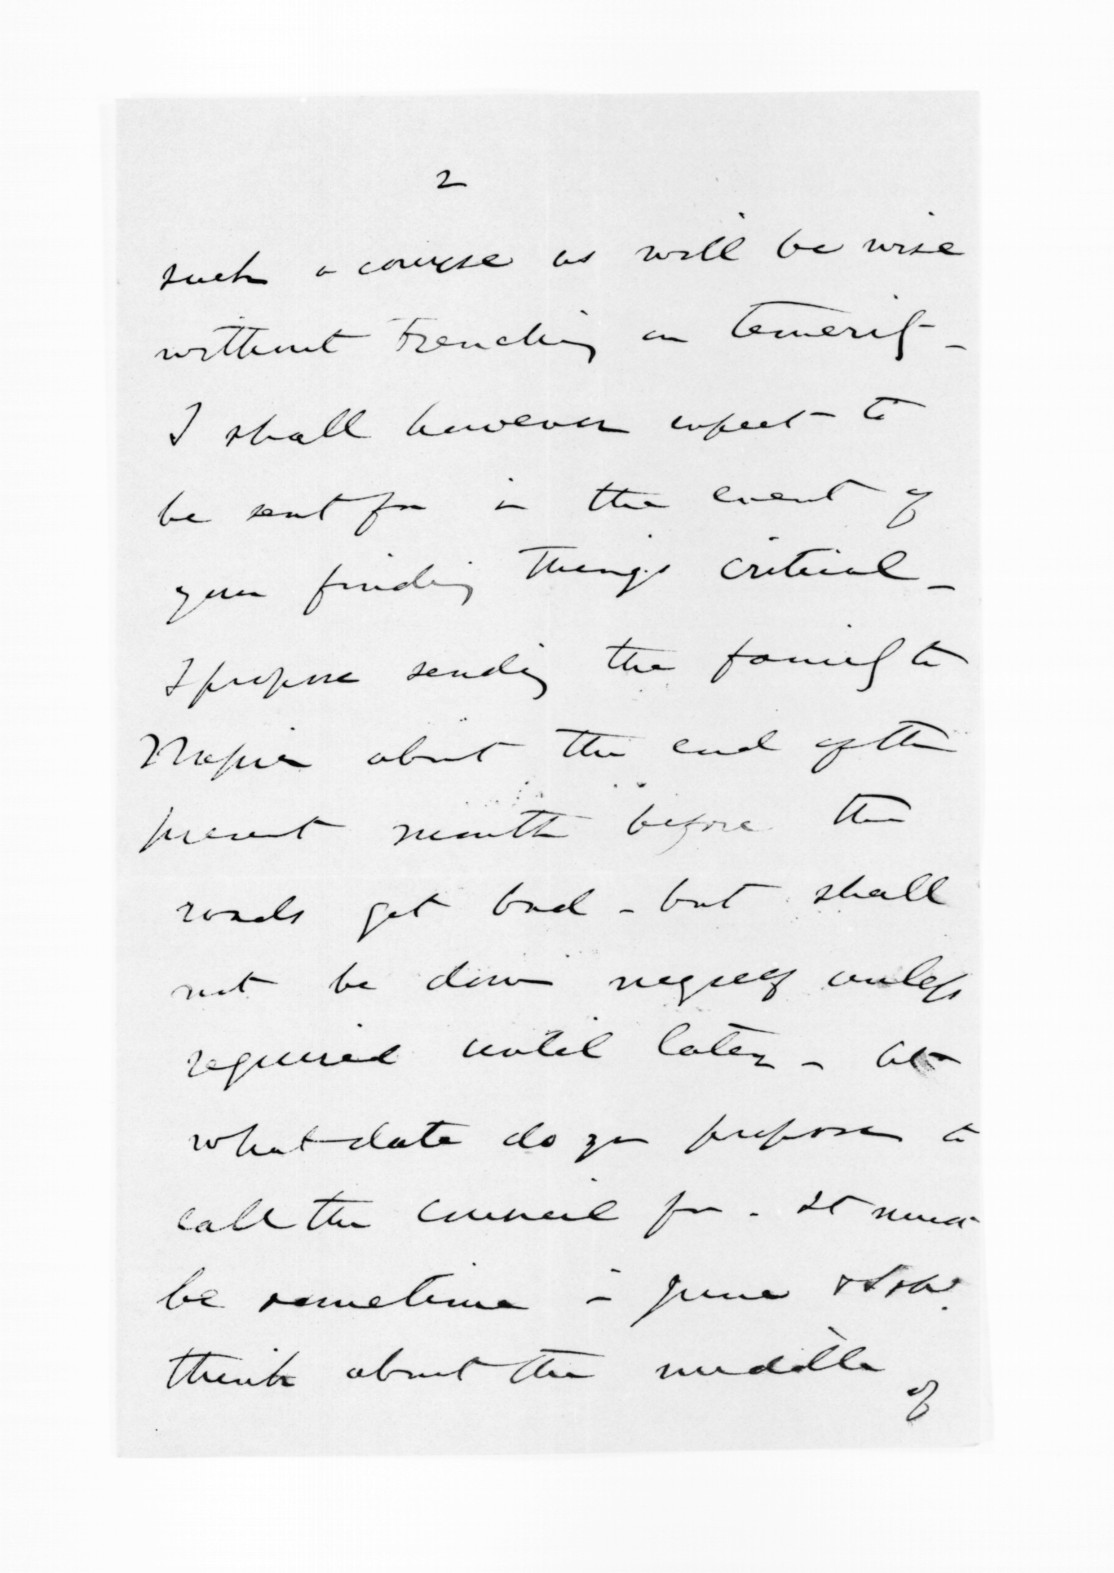 2
such a course as will be wise
without trenching on temerity -
I shall however expect to
be sent for in the event of
your finding things critical -
I propose sending the family to
Napier about the end of the
present month before the
roads get bad - but shall
not be down myself unless
required until later - At
what date do you propose to
call the Council for - It must
be sometime in June & I shd.
think about the middle
of